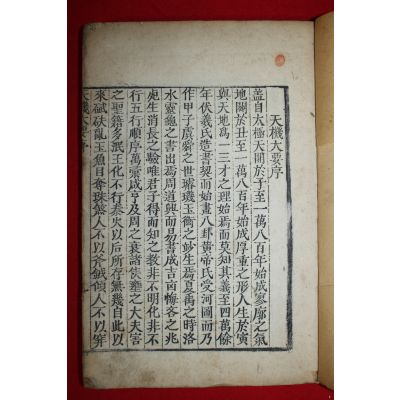 天機大要序
盖自太極天開於子至一萬八百年始成寥廓之氣
地闢於丑至一萬八百年始成厚重之形人生於寅
與天地爲一三才之理始焉而莫知其義至四萬餘
年伏羲氏造書契而始畫八卦黃帝氏受河圖而乃
作甲子虞舜之世璿璣玉衡之妙生焉夏禹之時洛
水靈龜之書出焉周道興而易書成吉凶悔吝之兆
庶生消長之驗唯君子得而知之敎非不明化非不
行五行順序萬彙咸亨及周之衰諸侯壅之大夫害
之聖籍多泯王化不行秦火以后所存無幾自此以
來碔砆亂玉魚目奪珠煞人不以斧鉞傾人不以穽
天機大要序